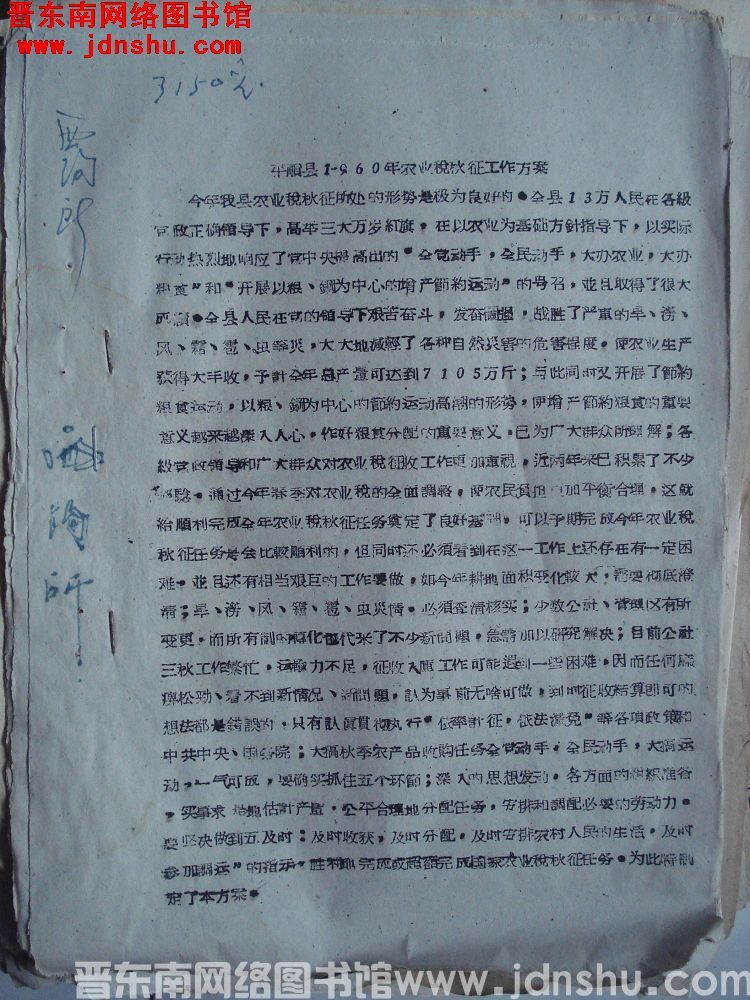 晋东南网络图书馆
www.jdnshu.com
3150元.
平順县1960年农业稅秋征工作方案
今年我县农业稅秋征所处的形势是极为良好的。全县13万人民在各級
党政正确領导下，高举三大万岁紅旗，在以农业为基础方針指导下，以实际
行动热烈地响应了党中央提高出的"全党动手，全民动手，大办农业，大办
粮食"和"开展以粮、鋼为中心的增产節約运动"的号召，並且取得了很大
成績。全县人民在党的領导下艰苦奋斗，发奋图强，战胜了严重的旱、涝、
风、霜、雹、虫等災，大大地减輕了各种自然災害的危害程度。使农业生产
获得大丰收，予計全年总产量可达到7105万斤；与此同时又开展了節約
粮食运动，以粮、鋼为中心的節約运动高潮的形势，使增产節約粮食的重要
意义越来越深入人心，作好粮食分配的重要意义，已为广大群众所理解；各
級党政領导和广大群众对农业稅征收工作更加重視，近两年来已积累了不少
経驗。通过今年春季对农业稅的全面調整，使农民負担更加平衡合理，这就
給順利完成全年农业稅秋征任务奠定了良好基础，可以予期完成今年农业稅
秋征任务是会比較順利的，但同时还必須看到在这一工作上还存在有一定困
难。並且还有相当艰巨的工作要做，如今年耕地面积变化較大，需要彻底澄
清；旱、涝、风、霜、雹、虫災情。必須查清核实；少数公社、管理区有所
变更，而所有制的变化也代来了不少新問題，急需加以研究解决；目前公社
三秋工作繁忙，运輸力不足，征收入庫工作可能遇到一些困难，因而任何麻
痹松劲、看不到新情况、新問題，認为事前无啥可做，到时征收結算即可的
想法都是錯誤的，只有認真貫彻执行"依率計征，依法减免"等各項政策和
中共中央、国务院；大搞秋季农产品收购任务全党动手，全民动手，大搞运
动，一气可成，要确实抓住五个环節；深入的思想发动，各方面的組織准备
，实事求是地估計产量，公平合理地分配任务，安排和調配必要的劳动力。
要坚决做到五及时：及时收获，及时分配，及时安排农村人民的生活，及时
参加調运"的指示，胜利地完成或超額完成国家农业稅秋征任务。为此特制
定了本方案。
晋东南网络图书馆www.jdnshu.com